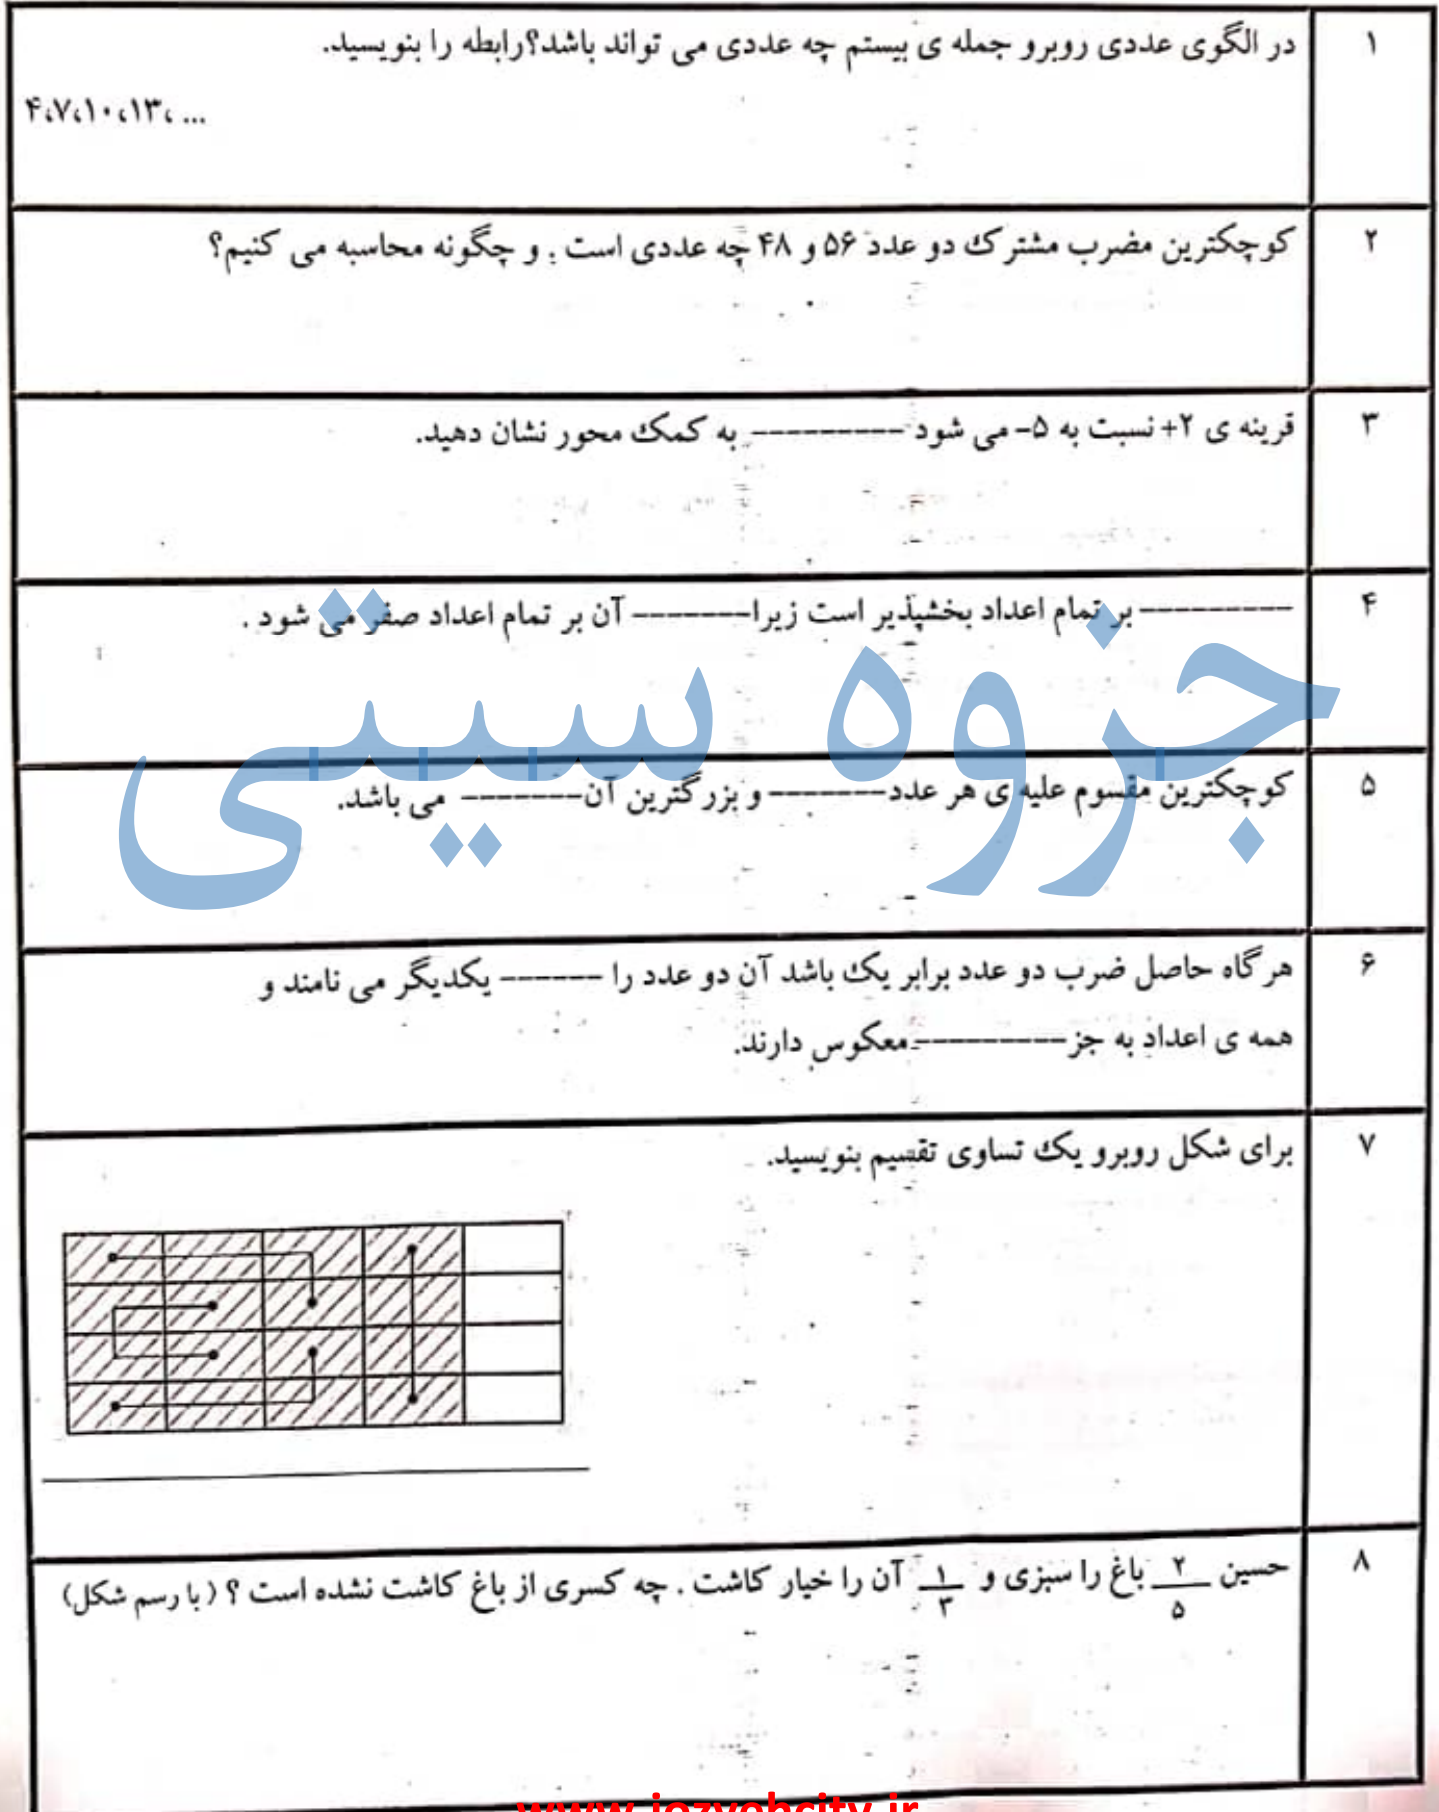 ۱
در الگوی عددی روبرو جمله ی بیستم چه عددی می تواند باشد؟رابطه را بنویسید.
۴،۷،۱۰،۱۳، ...
۲
کوچکترین مضرب مشترک دو عدد ۵۶ و ۴۸ چه عددی است . و چگونه محاسبه می کنیم؟
۳
قرینه ی ۲+ نسبت به ۵- می شود ---------- به کمک محور نشان دهید.
۴
---------- بر تمام اعداد بخشپذیر است زیرا-------- آن بر تمام اعداد صفر می شود .
۵
کوچکترین مقسوم علیه ی هر عدد-------- و بزرگترین آن-------- می باشد.
۶
هر گاه حاصل ضرب دو عدد برابر یک باشد آن دو عدد را ------- یکدیگر می نامند و
همه ی اعداد به جز ----------معکوس دارند.
۷
برای شکل روبرو یک تساوی تقسیم بنویسید.
۸
حسین ۲/۵ باغ را سبزی و ۱/۳ آن را خیار کاشت . چه کسری از باغ کاشت نشده است ؟ (با رسم شکل)
جزوه سیتی
www.jozvehcity.ir